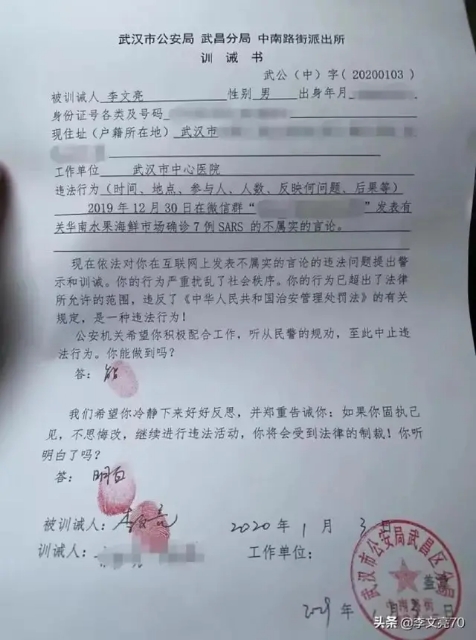 武汉市公安局 武昌分局 中南路街派出所
训 诫 书
武公（中）字（20200103）
被训诫人 李文亮 性别 男 出身年月
身份证号各类及号码
现住址（户籍所在地） 武汉市
工作单位 武汉市中心医院
违法行为（时间、地点、参与人、人数、反映何问题、后果等）
2019年12月30日在微信群“ ”发表有
关华南水果海鲜市场确诊7例SARS的不属实的言论。
现在依法对你在互联网上发表不属实的言论的违法问题提出警
示和训诫。你的行为严重扰乱了社会秩序。你的行为已超出了法律
所允许的范围，违反了《中华人民共和国治安管理处罚法》的有关
规定，是一种违法行为！
公安机关希望你积极配合工作，听从民警的规劝，至此中止违
法行为。你能做到吗？
答：能
我们希望你冷静下来好好反思，并郑重告诫你：如果你固执己
见，不思悔改，继续进行违法活动，你将会受到法律的制裁！你听
明白了吗？
答：明白
被训诫人：李文亮 2020年1月3日
训诫人： 工作单位：
武汉市公安局武昌区分局
盖章
年1月3日
头条 @李文亮70